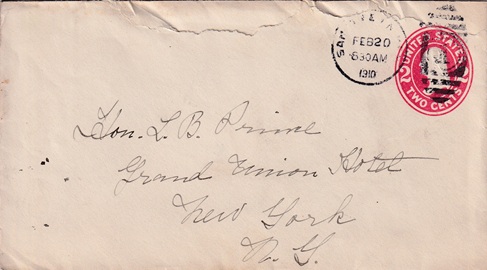 FEB 20
630AM
1910
UNITED STATES
TWO CENTS
Hon. L. B. Prime
Grand Union Hotel
New York
N. Y.